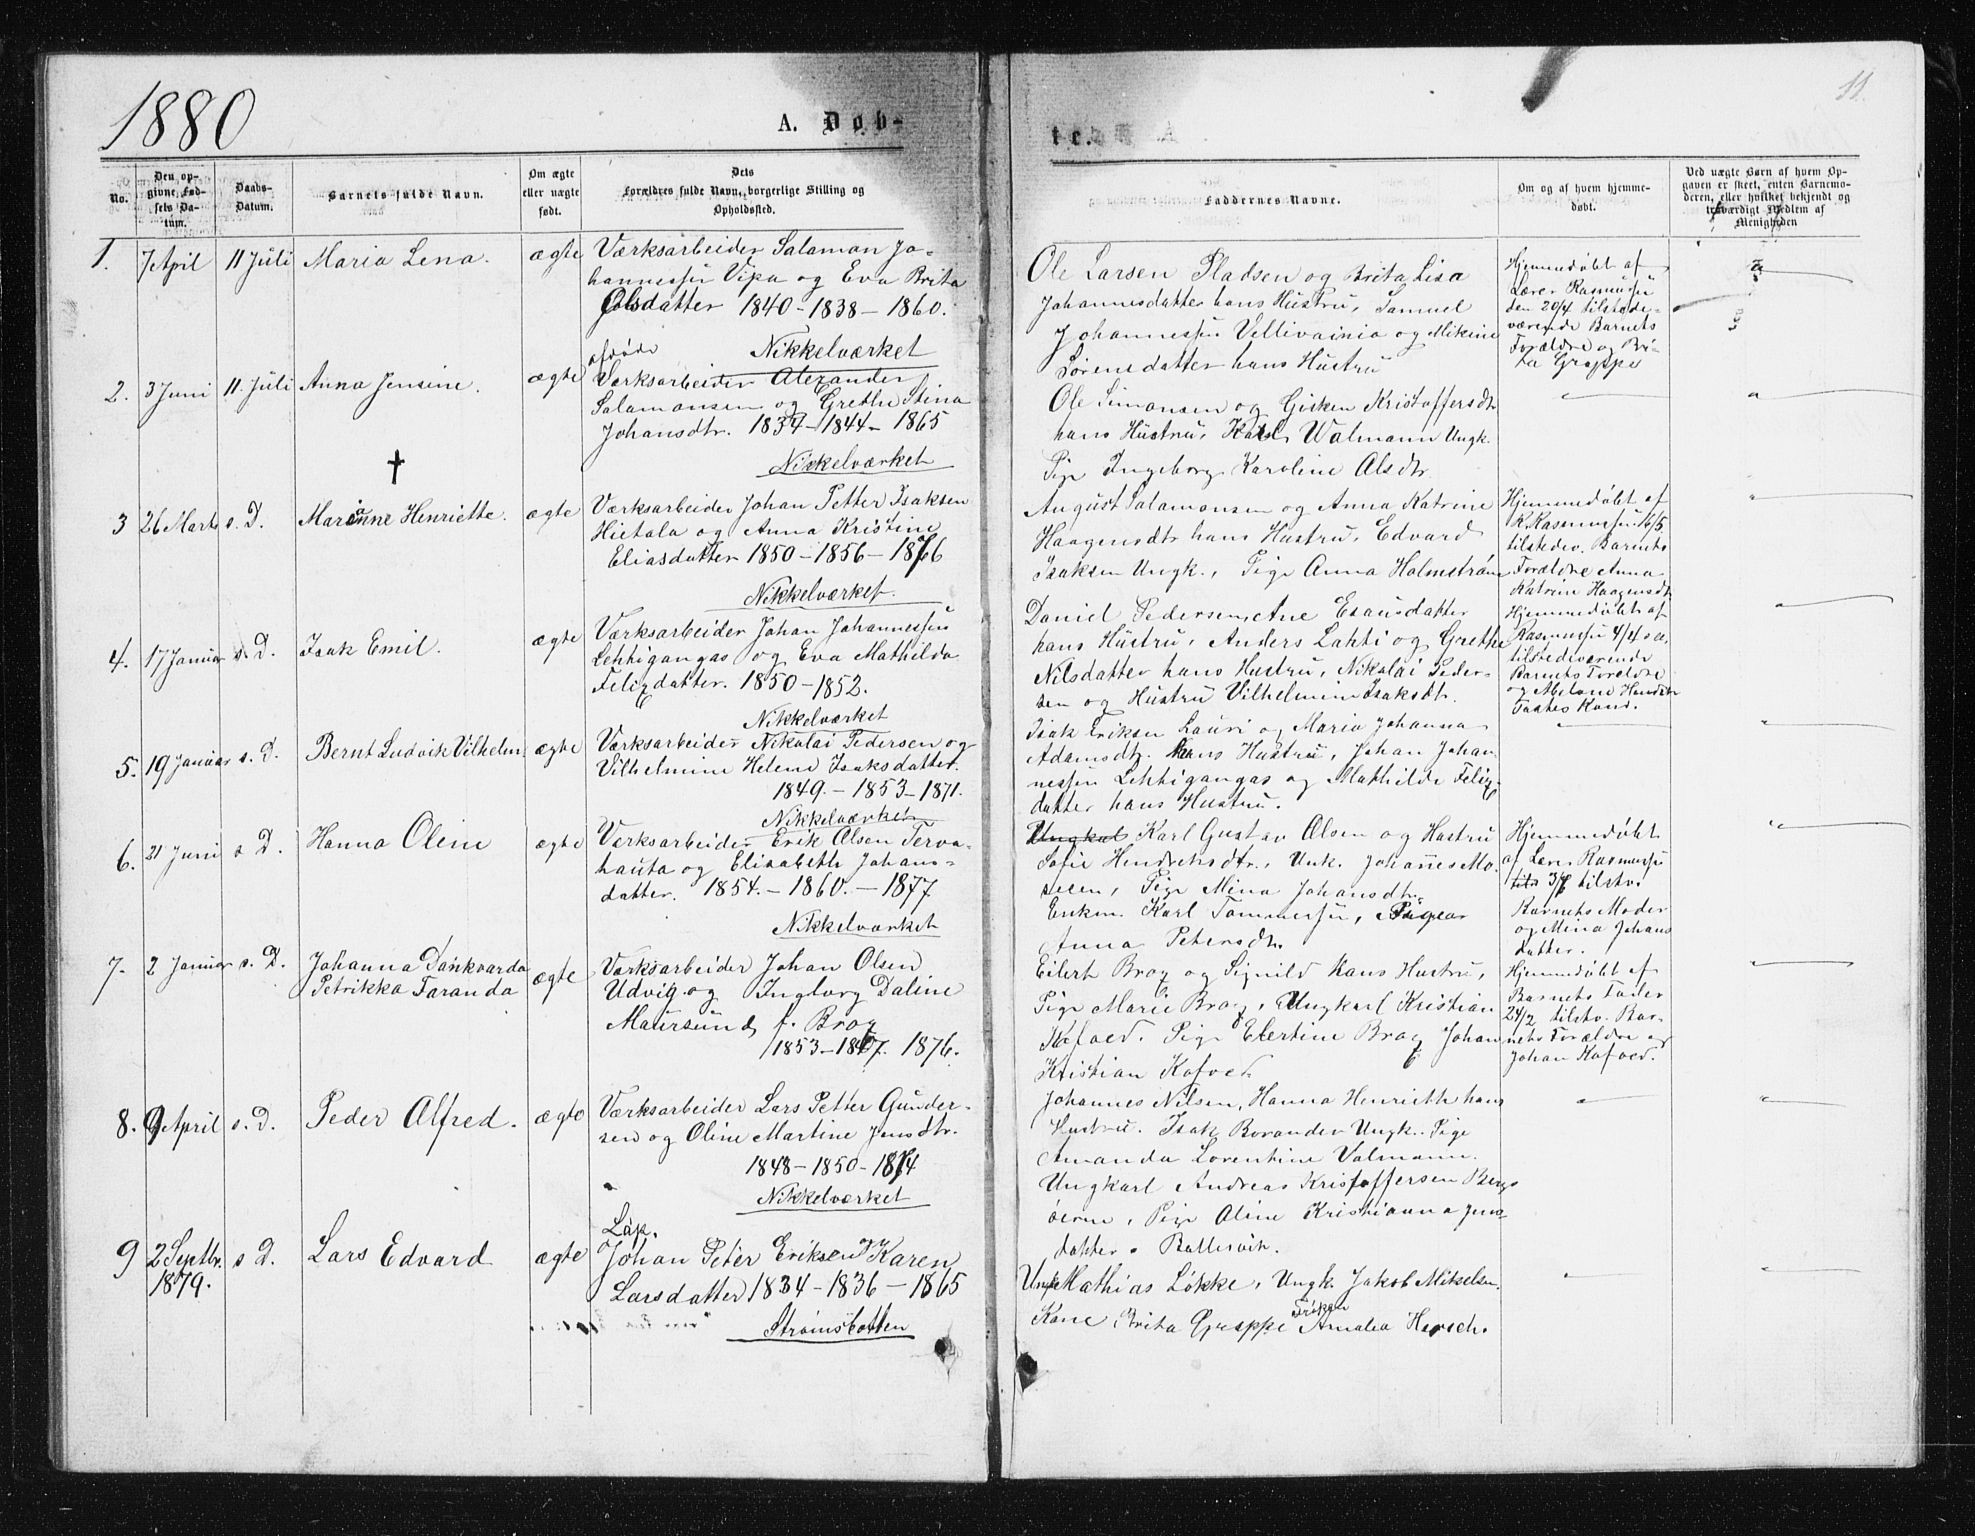 1880
A. Døb-
No.
Den op-
givne Fød-
sels Da-
tum.
Daabs-
Datum.
Barnets fulde Navn.
Om ægte
eller uægte
født.
Dets
Forældres fulde Navn, borgerlige Stilling og
Opholdssted.
1. 7 April 11 Juli Maria Lena. ægte
Værksarbeider Salamon Jo-
hannessen Vipa og Eva Brita
Olsdatter 1840 - 1838 - 1860.
Nikkelværket
2. 3 Juni 11 Juli Anna Jensine. ægte
afdøde
Værksarbeider Alexander
Salamonsen og Grethe Stina
Johansdtr. 1834 - 1844 - 1865
Nikkelværket
†
3 26 Marts s. D. Marianne Henriette. ægte
Værksarbeider Johan Petter Isaksen
Hietala og Anna Kristine
Eliasdatter 1850 - 1856 - 1876
Nikkelværket.
4. 17 Januar s. D. Isak Emil. ægte
Værksarbeider Johan Johannessen
Lehtigangas og Eva Mathilda
Felixdatter. 1850 - 1852.
Nikkelværket
5. 19 Januar s. D. Bernt Ludvik Vilhelm. ægte
Værksarbeider Nikolai Pedersen og
Vilhelmine Helene Isaksdatter.
1849. - 1853 - 1871.
Nikkelværket
6. 21 Juni s D. Hanna Oline ægte
Værksarbeider Erik Olsen Terva-
hauta og Elisabeth Johans-
datter. 1854. - 1860. - 1877
Nikkelværket
7. 2 Januar s. D. Johanna Dankvarda
Petrikka Taranda ægte
Værksarbeider Johan Olsen
Udvig og Ingborg Daline
Maursund f. Brox
1853 - 1847. 1876.
8. 9 April s. D. Peder Alfred. ægte
Værksarbeider Lars Petter Gunder-
sen og Oline Martine Jensdtr.
1848 - 1850 - 1874
Nikkelværket
9 2 Septbr.
1879. s D. Lars Edvard ægte
Lap.
Johan Peter Eriksen og Karen
Larsdatter 1834 - 1836 - 1865
Strømsbotten
11.
te.
Faddernes Navne.
Om og af hvem hjemme-
døbt.
Ved uægte Børn af hvem Op-
gaven er skeet, enten Barnemo-
deren, eller hvilket bekjendt og
troværdigt Medlem af
Menigheden
Ole Larsen Pladsen og Brita Lisa
Johannesdatter hans Hustru, Samuel
Johannessen Vellivainia og Mikine
Sørensdatter hans Hustru
Hjemmedøbt af
Lærer Rasmussen
den 20/4 tilstede-
værende Barnets
Forældre og Bri-
ta Grappe
Ole Simonsen og Gisken Kristoffersdtr
hans Hustru, Karl Walmann Ungk.
Pige Ingeborg Karoline Olsdtr.
August Salamonsen og Anna Katrine
Haagensdtr hans Hustru, Edvard
Isaksen Ungk., Pige Anna Holmstrøm
Hjemmedøbt af
R. Rasmussen 16/5
tilstedev. Barnets
Forældre Anna
Katrine Haagensdtr
Daniel Pedersen, Ane Esausdatter
hans Hustru, Anders Lahti og Grethe
Nilsdatter hans Hustru, Nikolai Peder-
sen og Hustru Vilhelmine Isaksdtr.
Hjemmedøbt af
Rasmussen 4/4
tilstedeværende
Barnets Forældre
Isak Eriksen Lauri og Maria Johanna
Adamsdtr. hans Hustru, Johan Johan-
nessen Lehtigangas og Mathilde Felix-
datter hans Hustru.
Ungkal Karl Gustav Olsen og Hustru
Sofie Hendriksdtr., Unk. Johannes Mo-
sesen, Pige Mina Johansdtr.
Enkem. Karl Tommessen, Pige
Anna Petersdtr.
Hjemmedøbt
af Lærer Rasmussen
tilstv.
Barnets Moder
og Mina Johans
datter.
Eilert Brox og Signild hans Hustru,
Pige Marie Brox, Ungkarl Kristian
Kofoed. Pige Elertine Brox Johan
Kristian Kofoed.
Hjemmedøbt af
Barnets Fader
24/2 tilstv. Bar-
nets Forældre og
Johan Kofoed.
Johannes Nilsen, Hanna Henriette hans
Hustru. Isak Borander Ungk. Pige
Amanda Lorentine Valmann.
Ungkarl Andreas Kristoffersen Bergs
øeren, Pige Oline Kristianna Jens-
datter. Ballesvik.
Ungk Mathias Løkke, Ungk. Jakob Mikelsen.
Kone Brita Grappe Frøken Amalia Hersch.